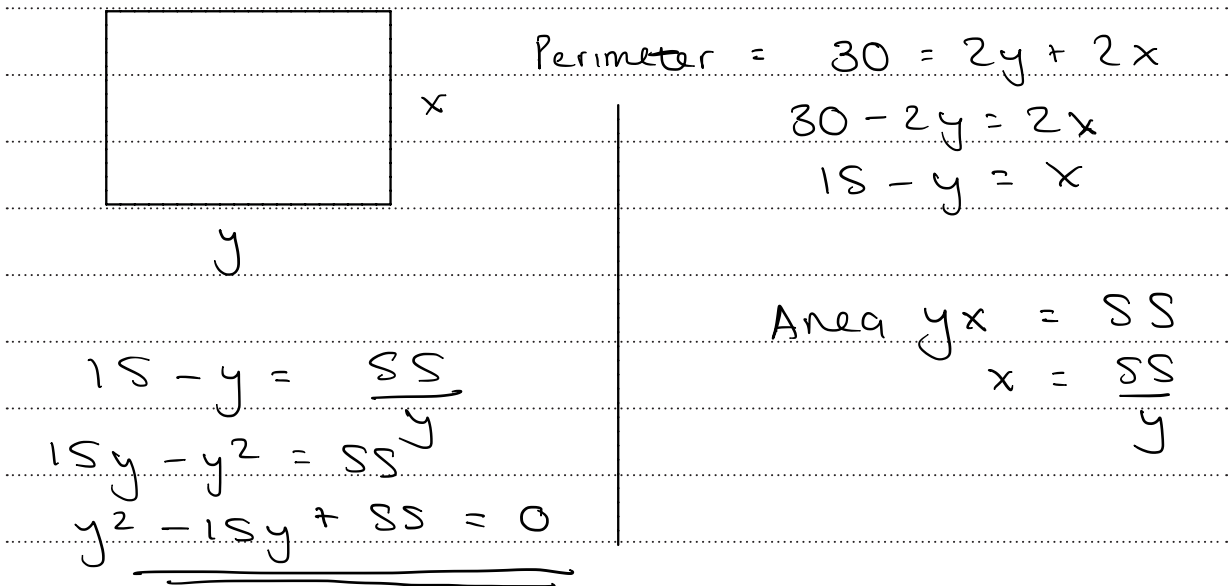 Perimeter = 30 = 2y + 2x
x
30 - 2y = 2x
15 - y = x
y
Area yx = 55
x = 55/y
15 - y = 55/y
15y - y² = 55
y² - 15y + 55 = 0